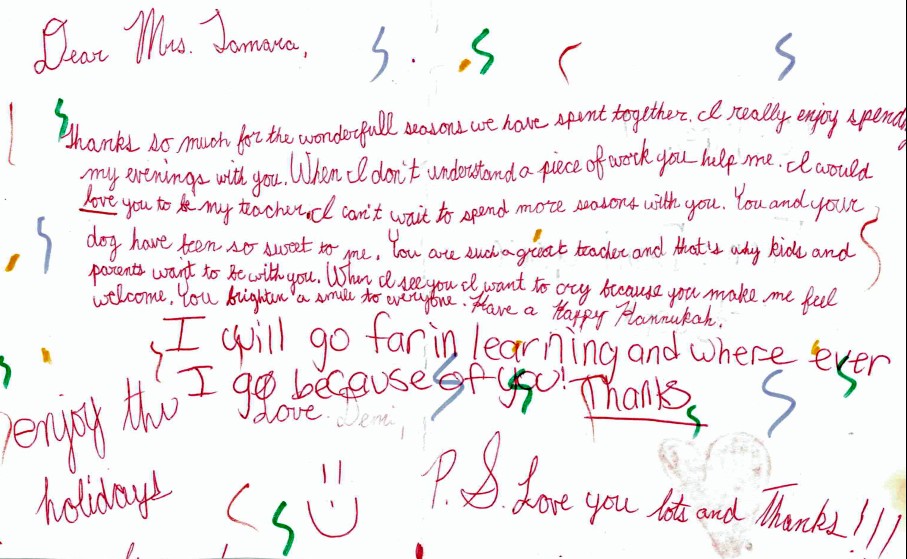 Dear Mrs. Tamara,
Thanks so much for the wonderfull seasons we have spent together. I really enjoy spend
my evenings with you. When I don't understand a piece of work you help me. I would
love you to be my teacher. I can't wait to spend more seasons with you. You and your
dog have been so sweet to me. You are such a great teacher and that's why kids and
parents want to be with you. When I see you I want to cry because you make me feel
welcome. You brightin a smile to everyone. Have a Happy Hannukah.
I will go far in learning and where ever
I go because of you! Thanks
Love Demi,
enjoy the
holidays
P.S. Love you lots and Thanks!!!